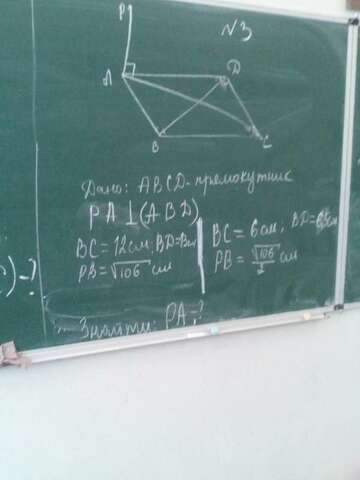 N3
P
A
D
B
C
Дано: ABCD-прямокутник
PA⊥(ABD)
BC=12см; BD=13см
PB=√106 см
BC=6см;
PB=√106/2 см
)-?
Знайти: PA-?